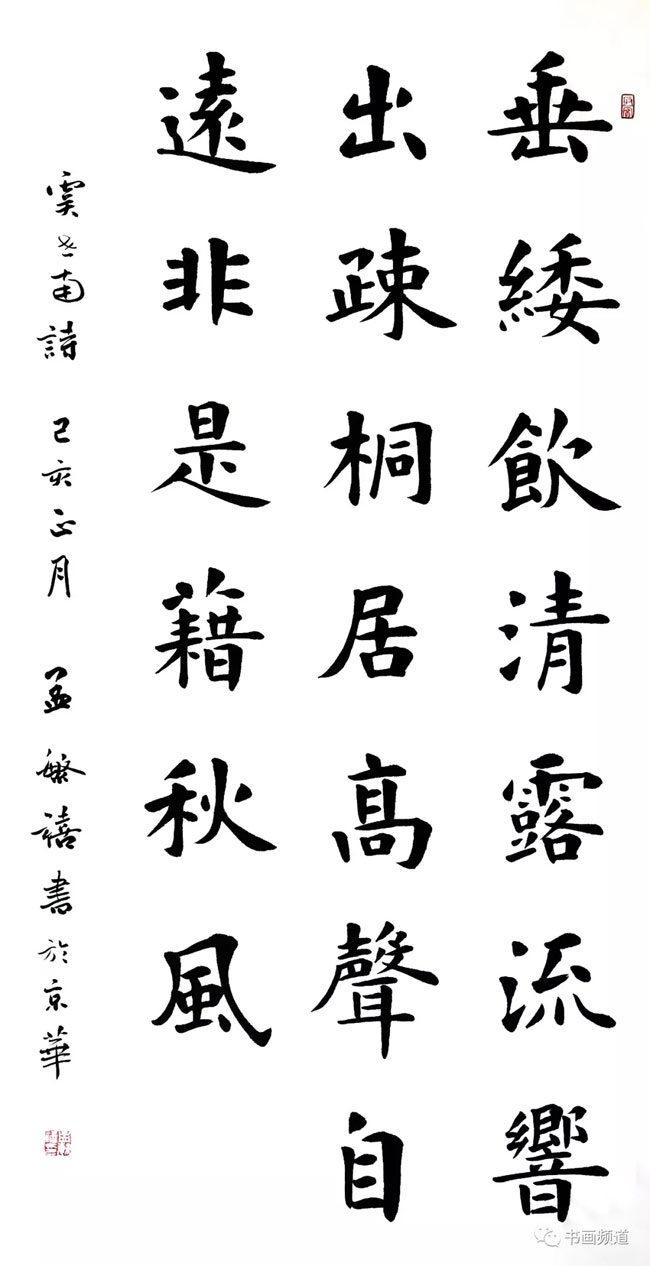 垂緌飲清露流響
出疎桐居高聲自
遠非是藉秋風
虞世南詩 己亥正月 孟繁禧書於京華
书画频道